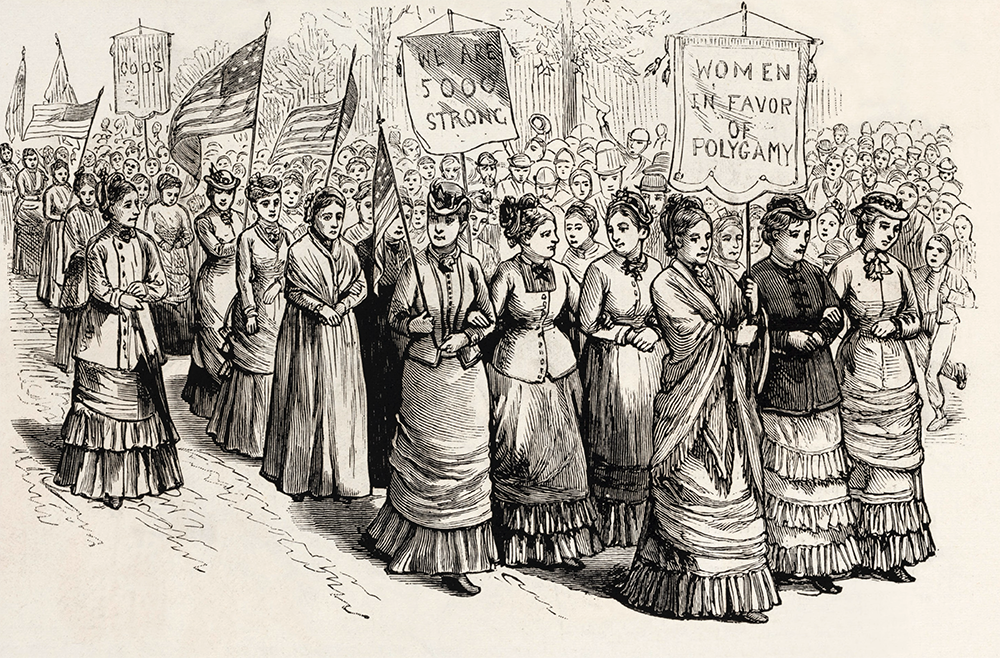 GODS
WE ARE
5000
STRONG
WOMEN
IN FAVOR
OF
POLYGAMY